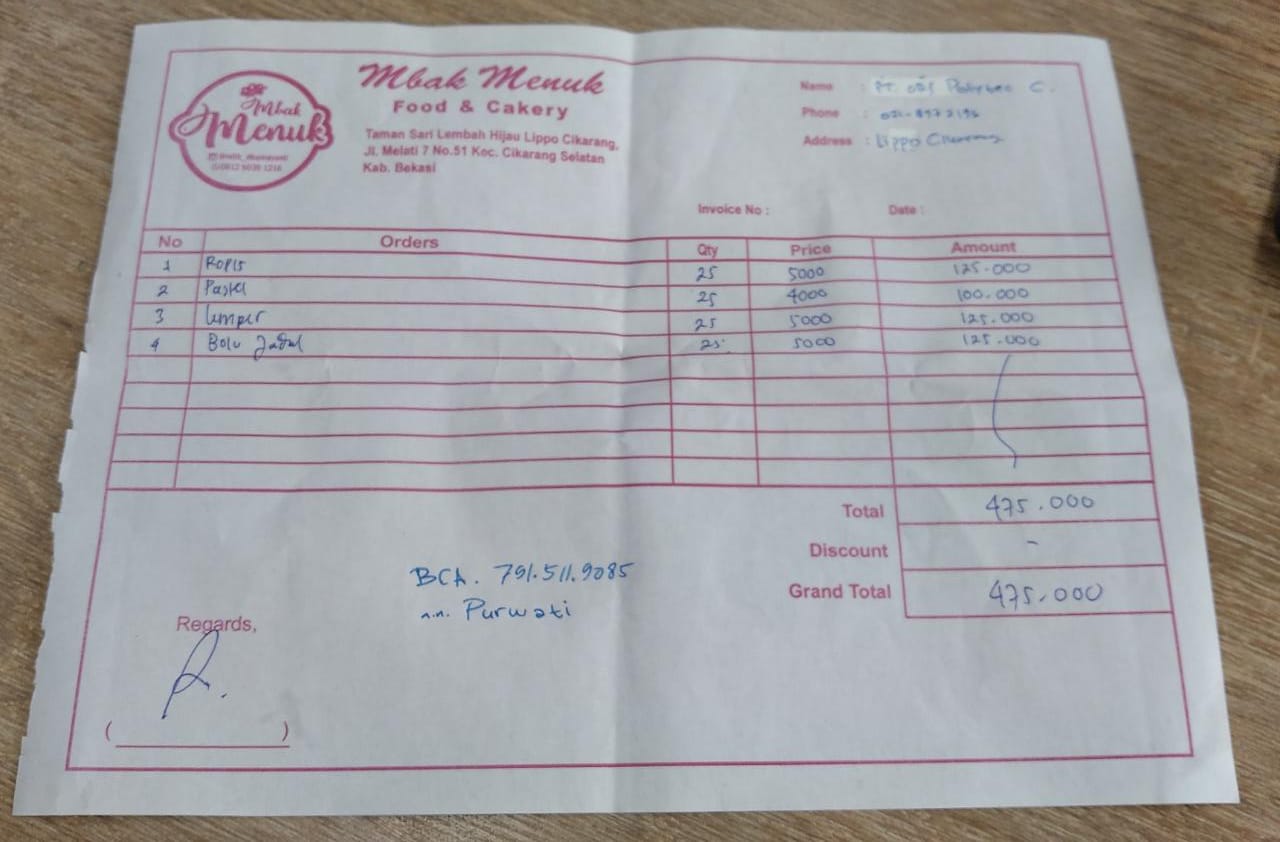 Mbak
Menuk
Mbak Menuk
Food & Cakery
Taman Sari Lembah Hijau Lippo Cikarang,
Jl. Melati 7 No.51 Kec. Cikarang Selatan
Kab. Bekasi
Name : PT.
Phone :
Address : Lippo
Invoice No :
Date :
No Orders Qty Price Amount
1 Ropis 25 5000 125.000
2 Pastel 25 4000 100.000
3 Lemper 25 5000 125.000
4 Bolu Jadul 25 5000 125.000
Total 475.000
Discount -
Grand Total 475.000
BCA. 791.511.9085
a.n. Purwati
Regards,
( )